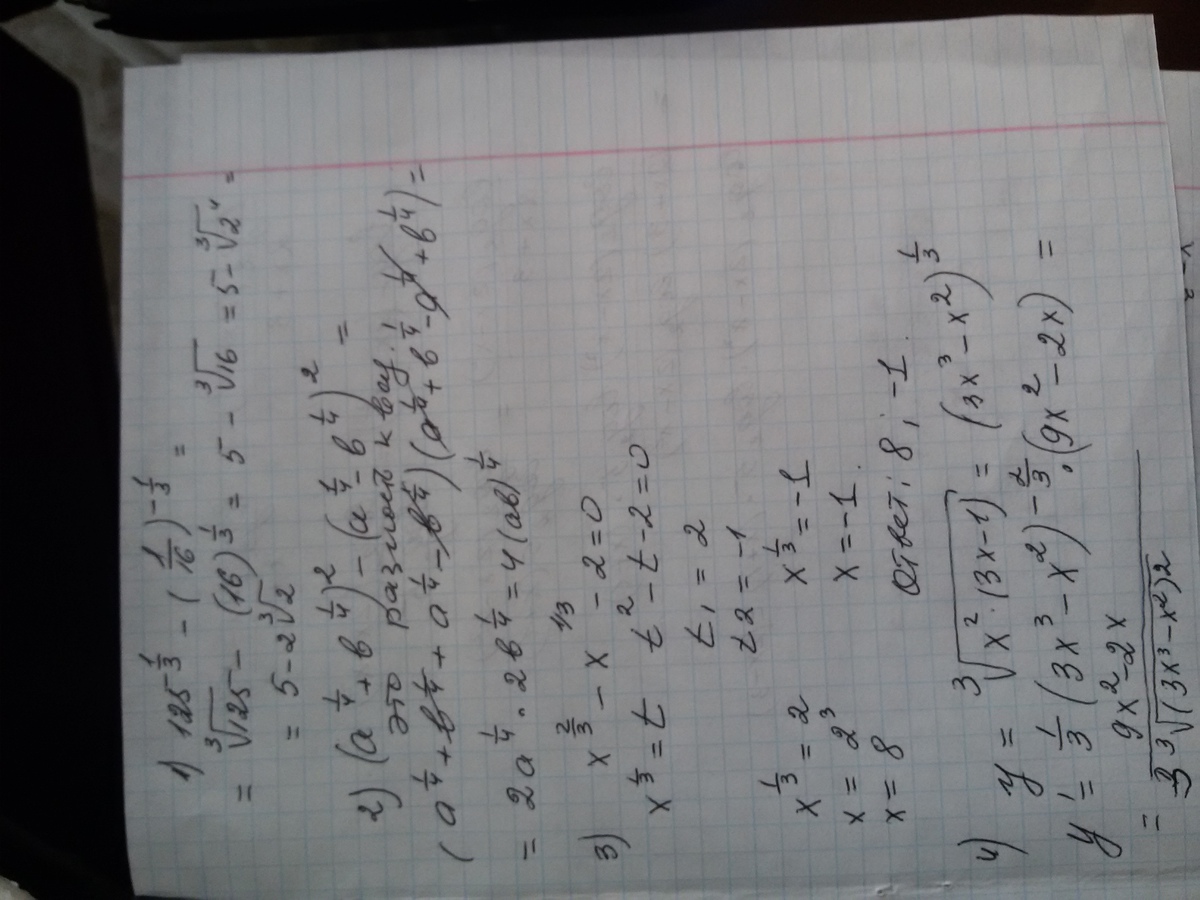 1) 125^{1/3} - (1/16)^{-1/3} =
= ∛125 - (16)^{1/3} = 5 - ∛16 = 5 - ∛2⁴ =
= 5 - 2∛2
2) (a^{1/4} + b^{1/4})² - (a^{1/4} - b^{1/4})² =
это разность квад.!
(a^{1/4} + b^{1/4} + a^{1/4} - b^{1/4})(a^{1/4} + b^{1/4} - a^{1/4} + b^{1/4}) =
= 2a^{1/4} · 2b^{1/4} = 4(ab)^{1/4}
3) x^{2/3} - x^{1/3} - 2 = 0
x^{1/3} = t t² - t - 2 = 0
t₁ = 2
t2 = -1
x^{1/3} = 2 x^{1/3} = -1
x = 2³ x = -1.
x = 8
Ответ: 8; -1.
4) y = ∛(x²·(3x-1)) = (3x³ - x²)^{1/3}
y' = 1/3 (3x³ - x²)^{-2/3} · (9x² - 2x) =
= (9x² - 2x) / (3∛((3x³ - x²)2))